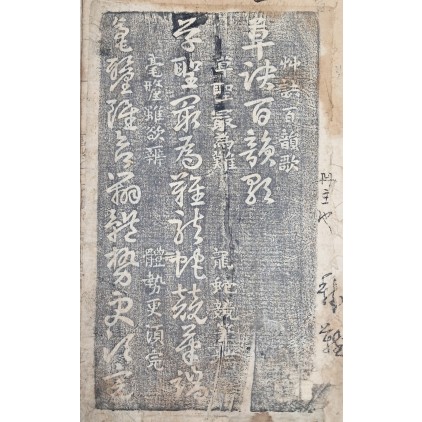 艸訣百韻歌
草訣百韻歌
草聖最為難 龍蛇競筆端
草聖最為難龍蛇競筆端
毫釐雖欲辨 體勢更須完
毫釐雖欲辨體勢更須完